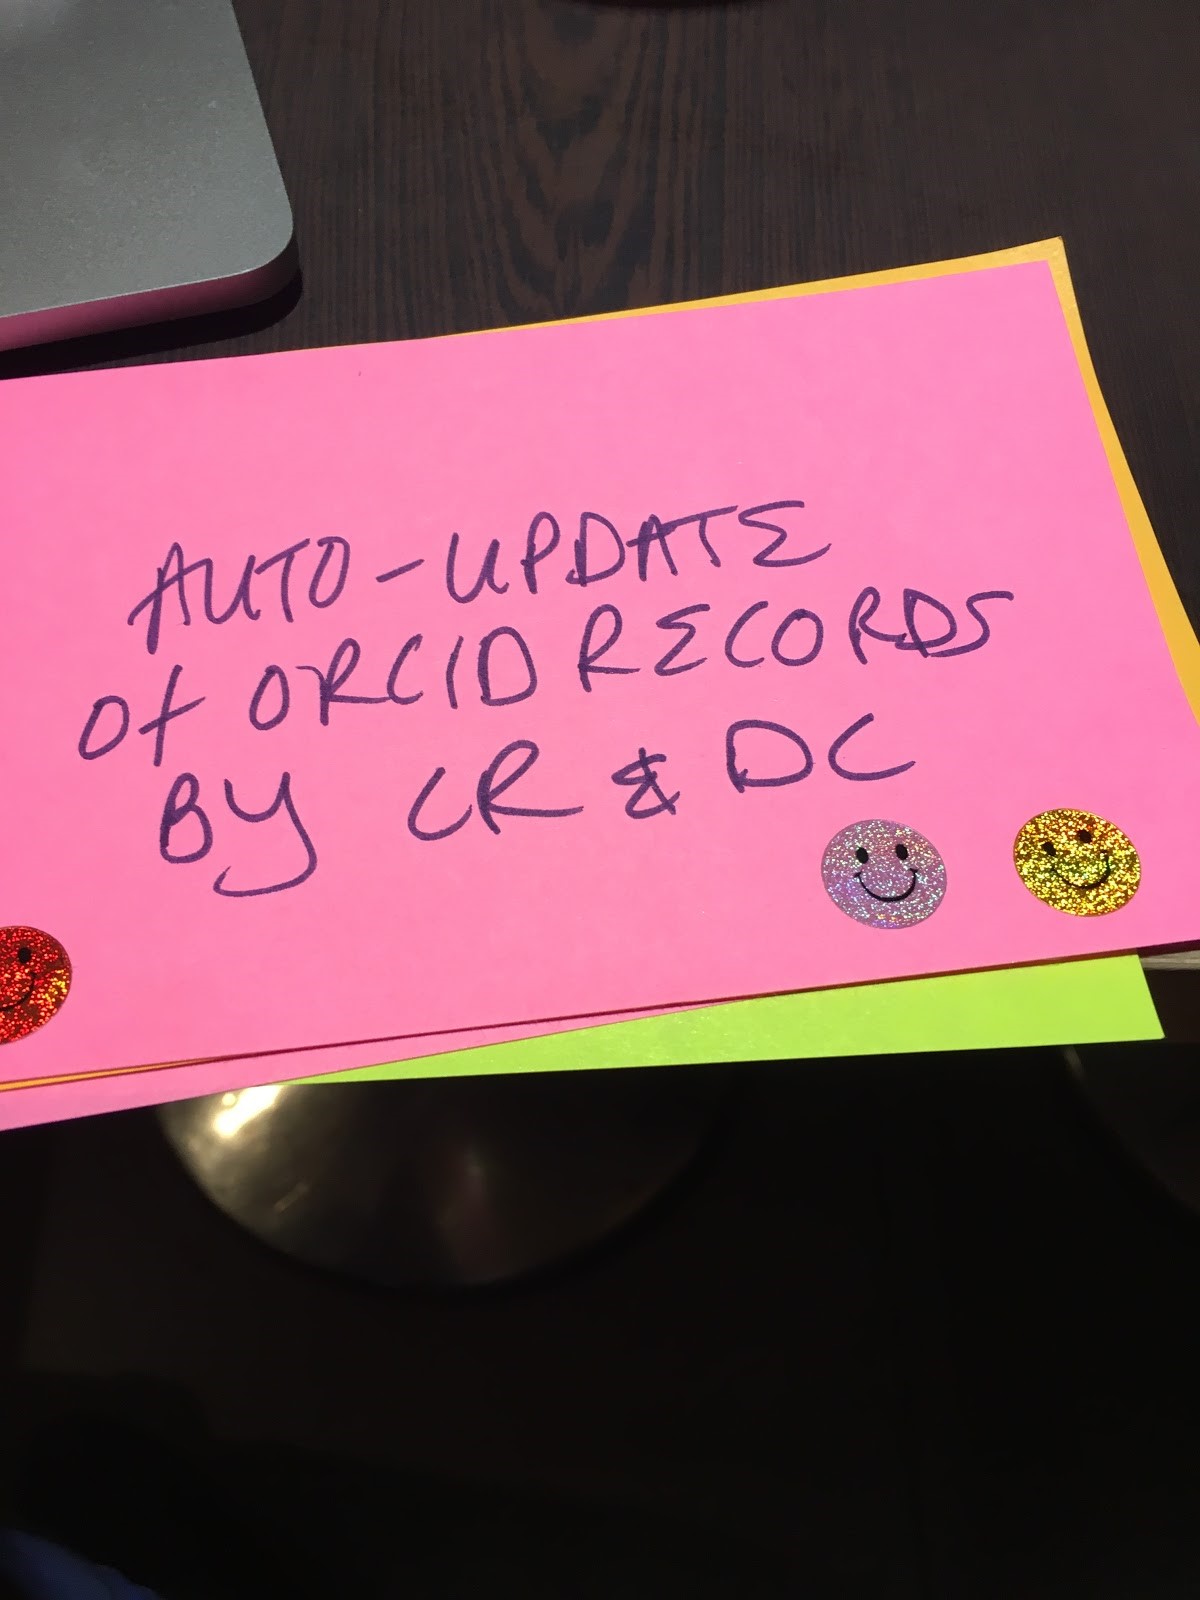 AUTO-UPDATE
Of ORCID RECORDS
BY CR & DC